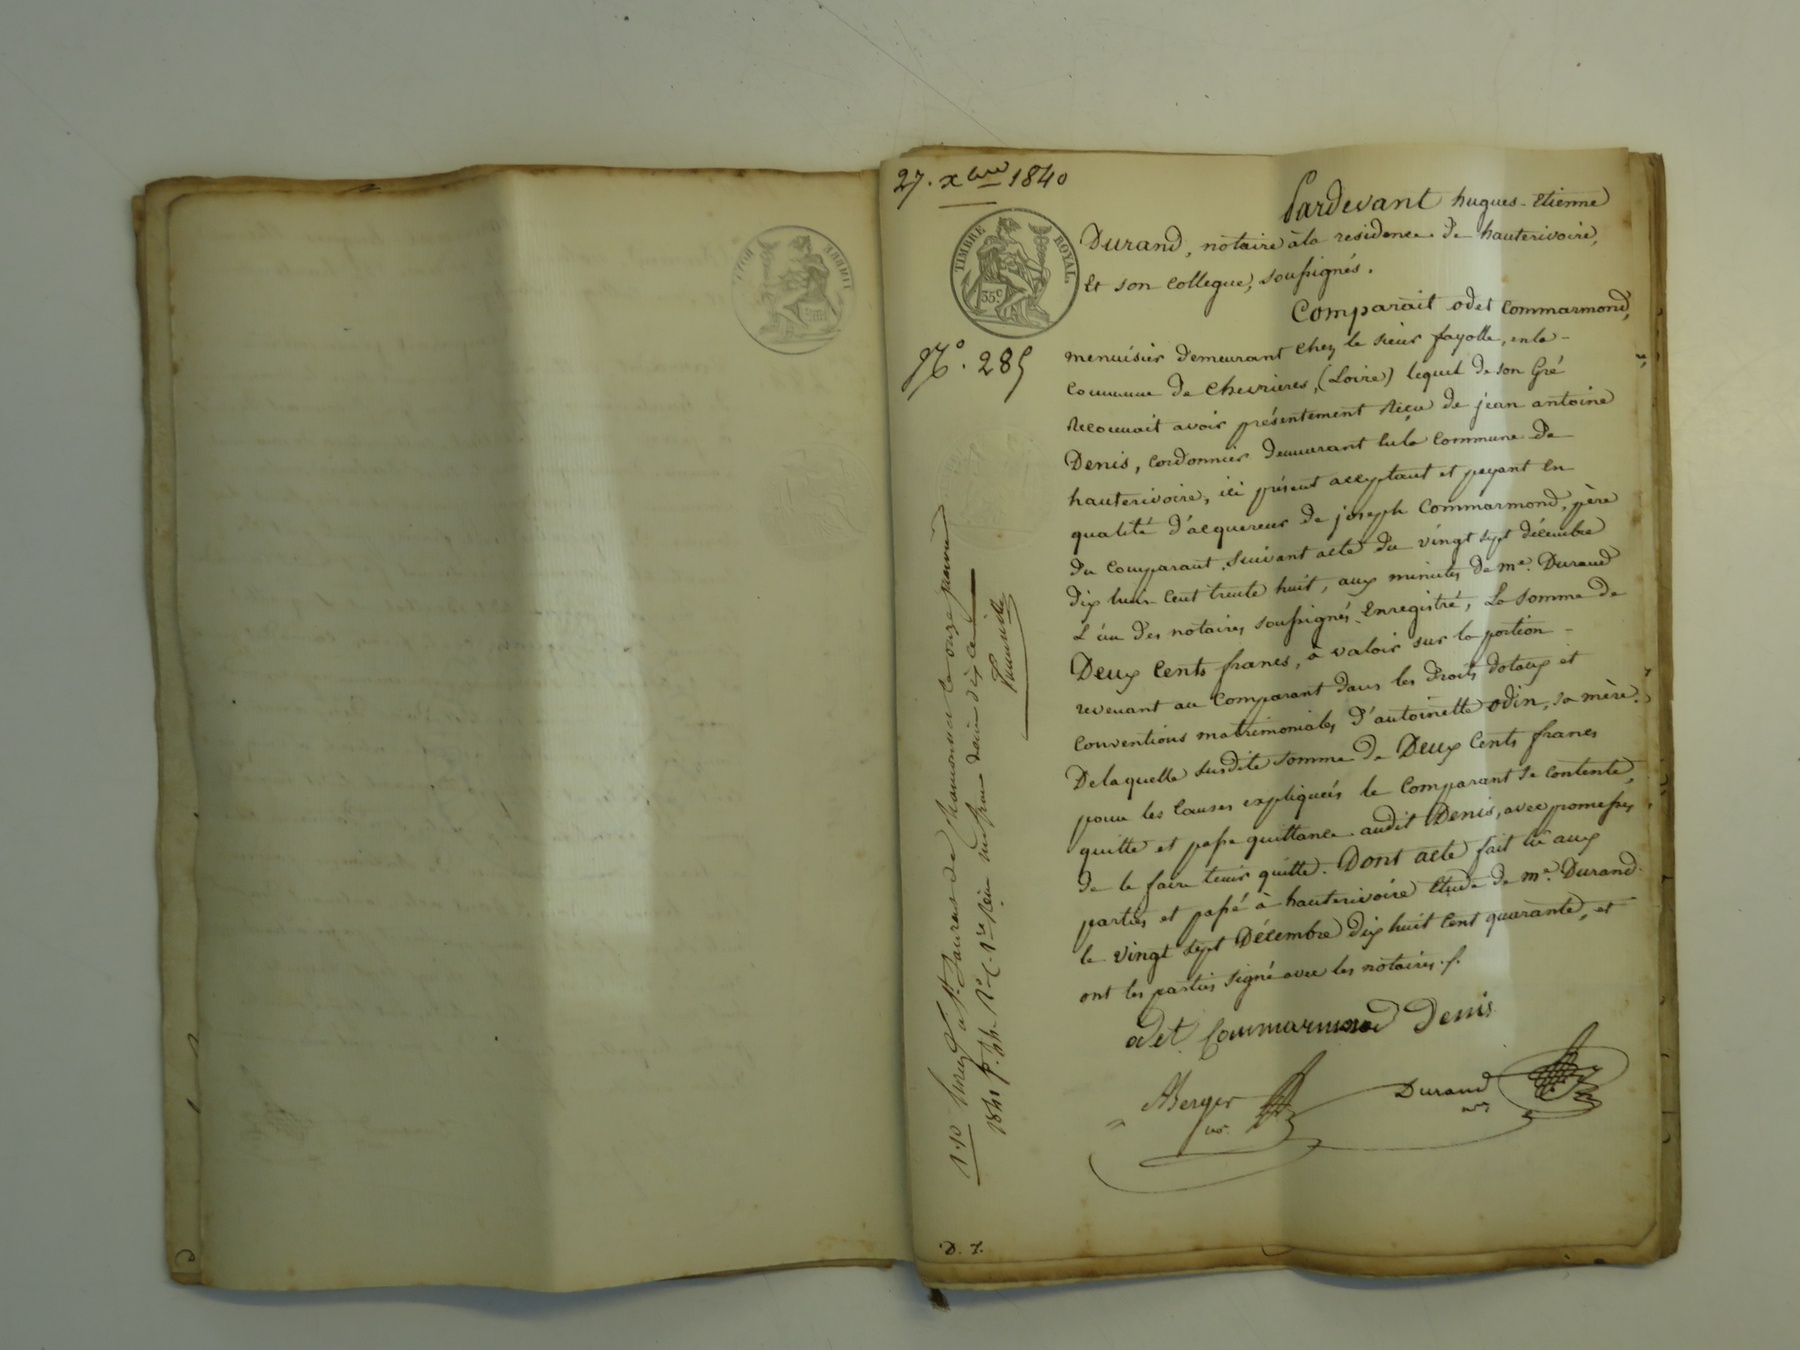 27. xbre 1840
TIMBRE ROYAL
35c
N.º 285
Pardevant hugues-Etienne
Durand, notaire à la residence de hauterivoire,
Et son collegue, soussignés.
Comparait odet Commarmond,
menuisier demeurant chez le sieur fayolle, en la
commune de Chevrieres, (Loire) lequel de son Gré
Reconnait avoir présentement Reçu de jean antoine
Denis, Cordonnier demeurant en la commune de
hauterivoire, ici présent acceptant et payant En
qualité d'acquereur de joseph Commarmond, père
du Comparant, Suivant acte du vingt sept décembre
dix huit Cent trente huit, aux minutes de me. Durand
L'un des notaires soussignés, Enregistré, La Somme de
Deux Cents francs, à valoir sur la portion
revenant au Comparant dans les droits dotaux et
Conventions matrimoniales d'antoinette odin, sa mère.
De laquelle susdite somme de Deux Cents francs
pour les Causes expliquées le Comparant se contente,
quitte et passe quittance audit Denis, avec promesses
de le faire tenir quitte. Dont acte fait lu aux
parties et passé à hauterivoire Etude de me. Durand
le vingt sept Décembre dix huit Cent quarante, et
ont les parties signé avec les notaires.
odet Commarmond Denis
Berger Durand
nre
1.10 Enreg. à St. Laurent de Chamousset le onze janvier
1841 fo. 44 Ro. C. 1re Reçu un franc dixième dix c.
D. 7.